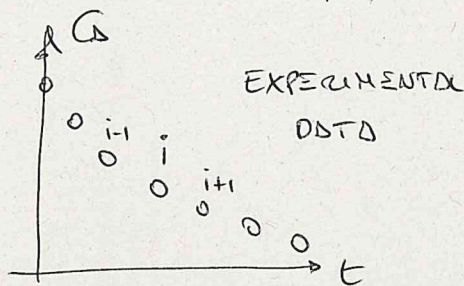 CA
EXPERIMENTAL
DATA
i-1
i
i+1
t